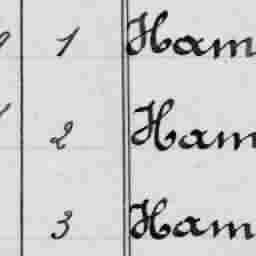 1 Ham
2 Ham
3 Ham